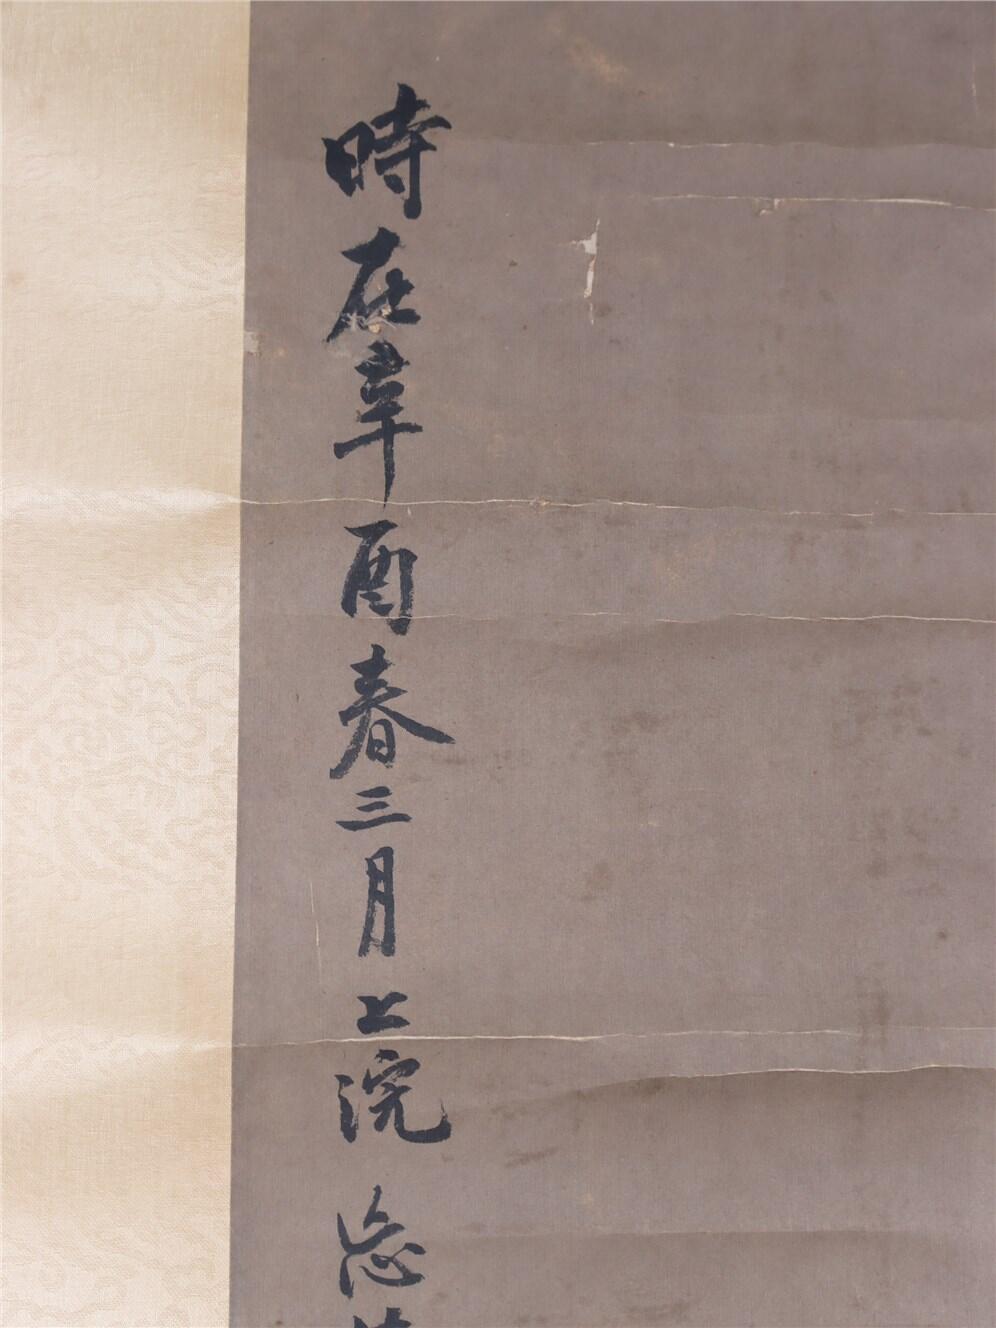 時在辛酉春三月上浣